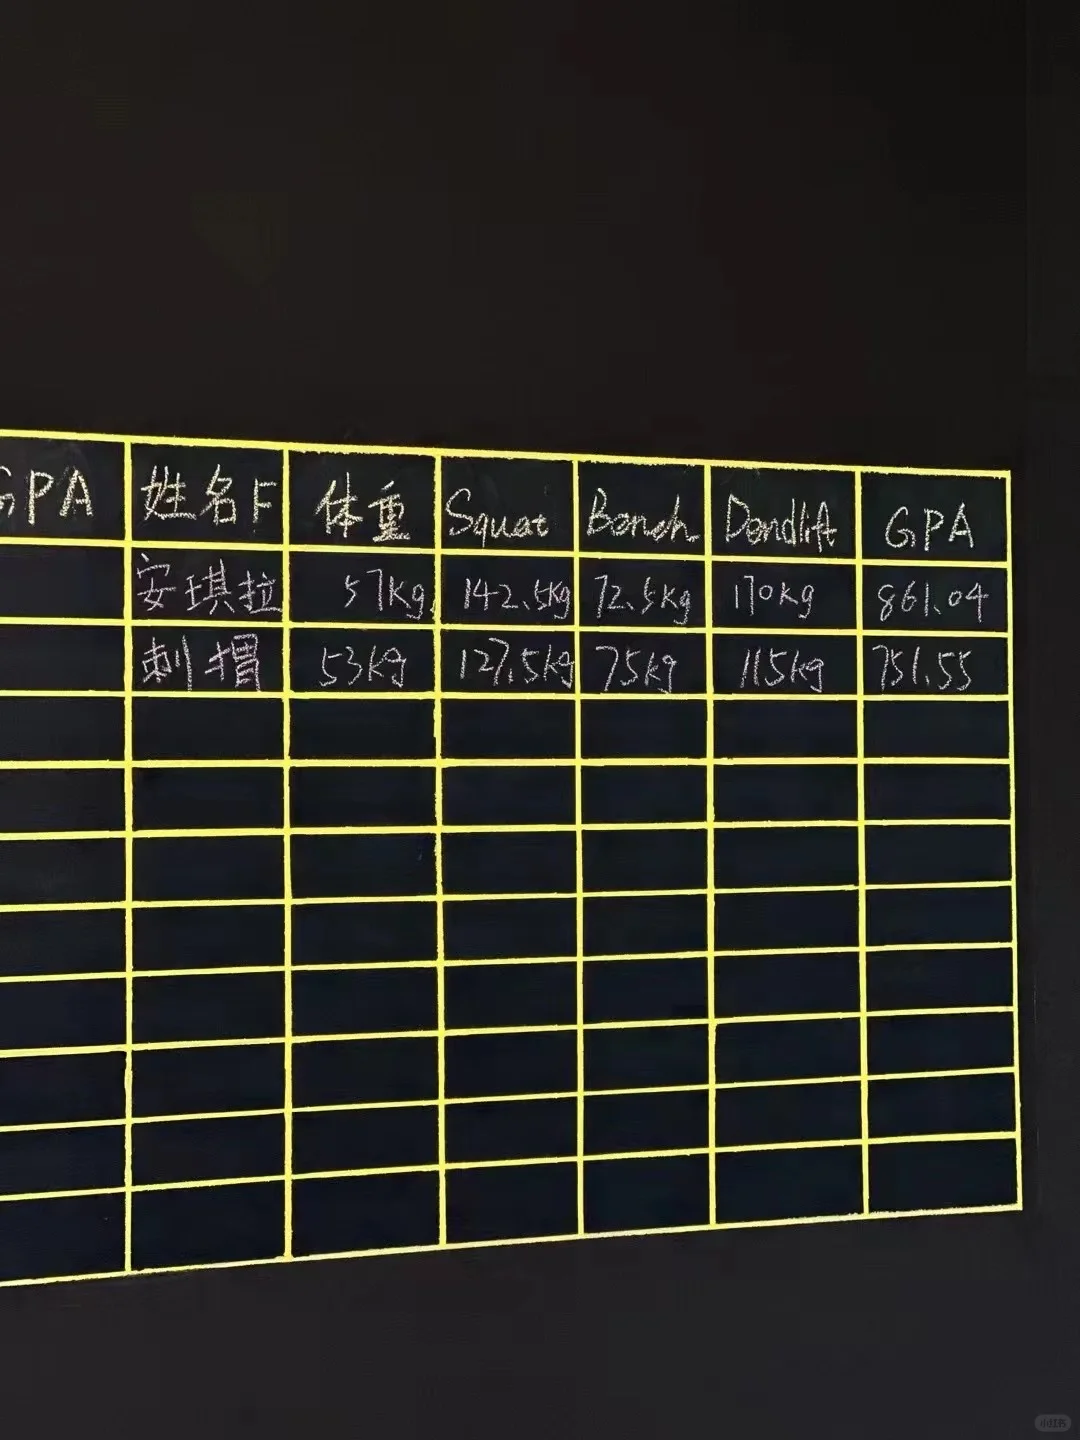 GPA 姓名F 体重 Squat Bench Deadlift GPA
安琪拉 57kg 142.5kg 72.5kg 170kg 861.04
刺猬 53kg 127.5kg 75kg 115kg 751.55